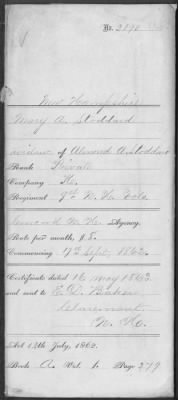 No. 2890
New Hampshire
Mary A. Stoddard
widow of Almond A. Stoddard
Rank Private
Company H.
Regiment 9th N. H. Vols
Concord N. H. Agency.
Rate per month, $8.
Commencing 17 Sept, 1862.
Certificate dated 16 May 1863
and sent to E. D. Baker
Claremont
N. H.
Act 14th July, 1862.
Book A. Vol. 1. Page 279